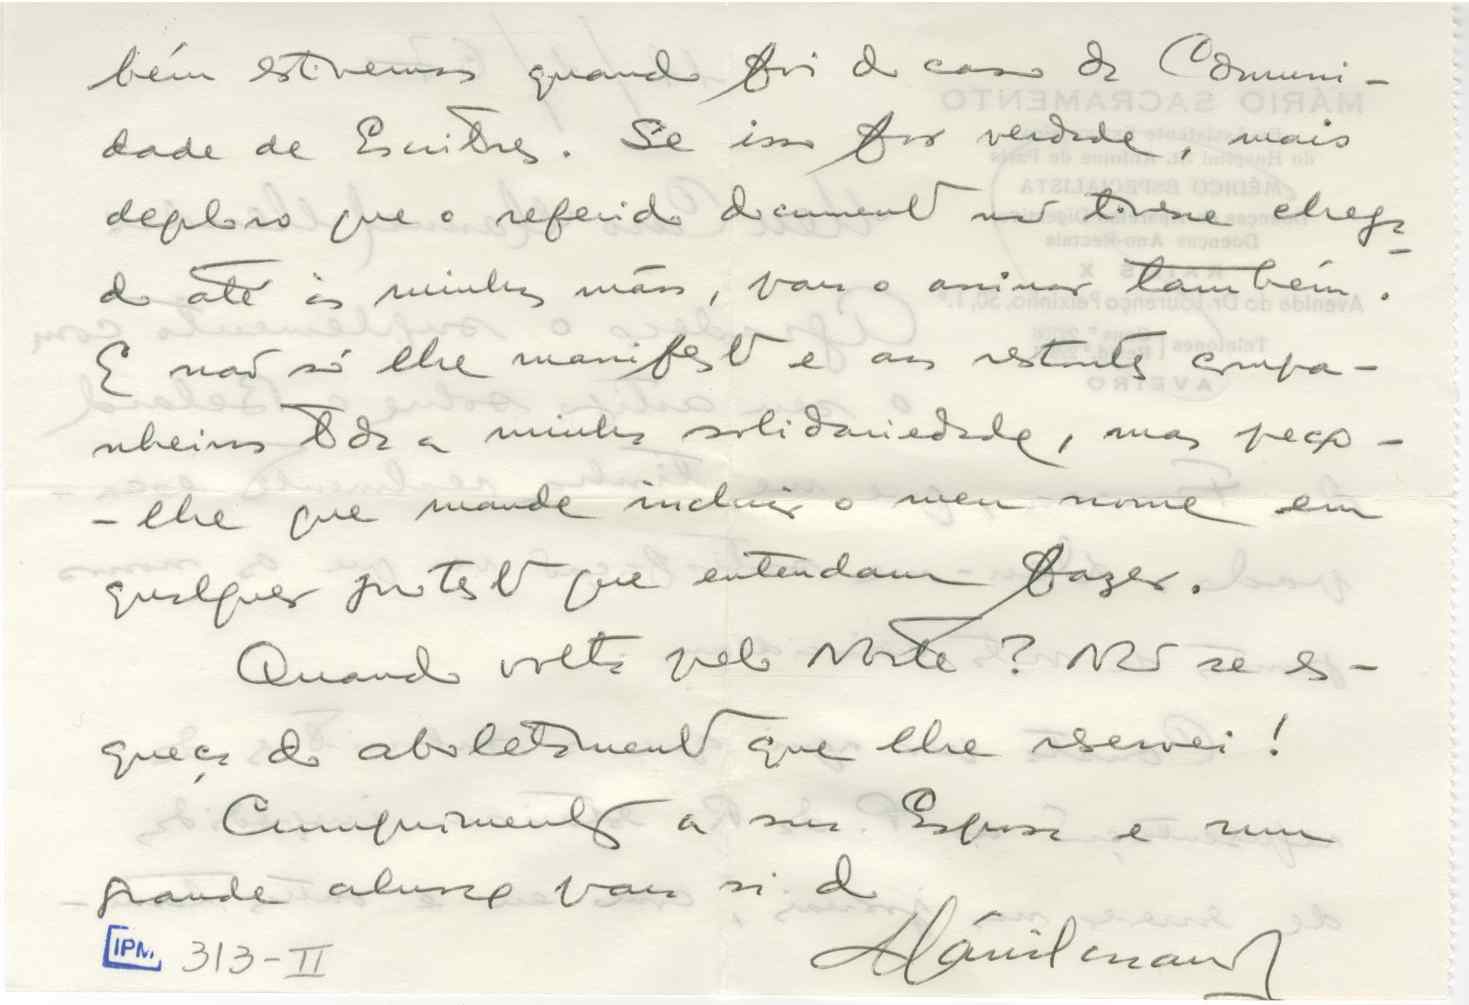 bém estivemos quando foi do caso da Comuni-
dade de Escritores. Se isso for verdade, mais
deploro que o referido documento não tivesse chega-
do até às minhas mãos, para o assinar também.
E não só lhe manifesto e aos restantes compa-
nheiros toda a minha solidariedade, mas peço-
-lhe que mande incluir o meu nome em
qualquer protesto que entendam fazer.
Quando volta pelo Norte? Não se es-
queça do aboletamento que lhe reservei!
Cumprimentos a sua Esposa e um
grande abraço para si do
Mário Sacramento
IPM. 313-II
MÁRIO SACRAMENTO
MÉDICO ESPECIALISTA
Doenças Ano-Rectais
RAIOS X
Avenida do Dr. Lourenço Peixinho, 50, 1.º
Telefones
AVEIRO